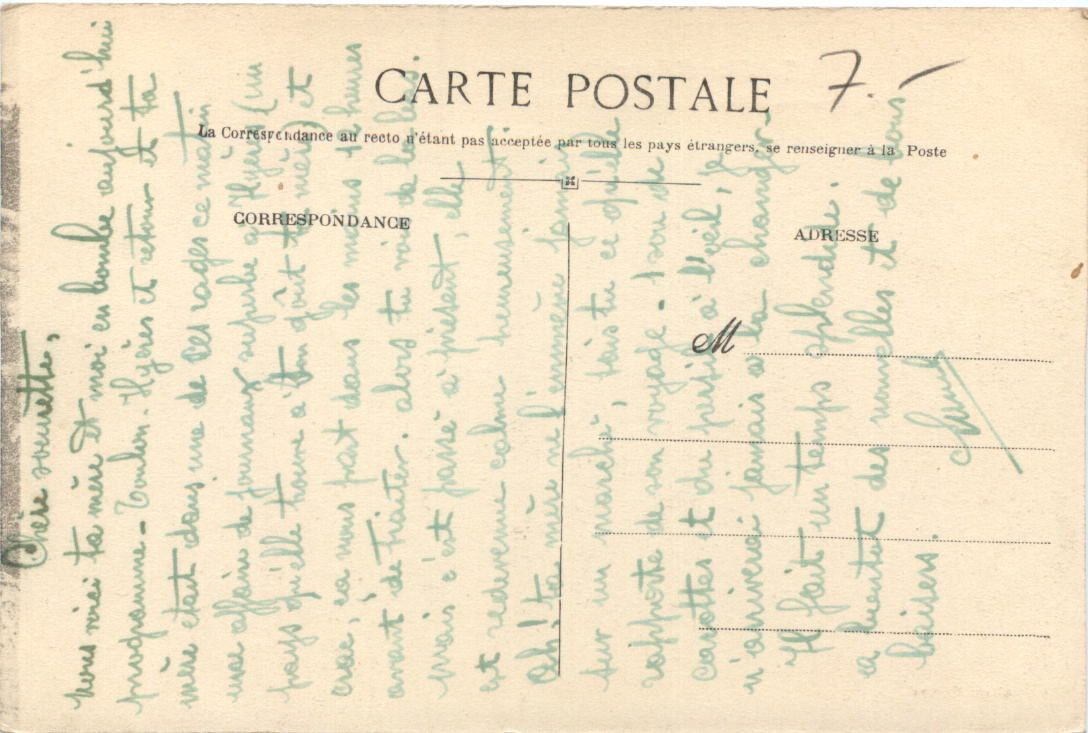 CARTE POSTALE
7.-
La Correspondance au recto n'étant pas acceptée par tous les pays étrangers, se renseigner à la Poste
CORRESPONDANCE
ADRESSE
M
Chère sourette,
nous voici ta mère et moi en bombe aujourd'hui
programme - Toulon. Hyères et retour et ta
mère était dans une de ses rages ce matin
une affaire de journaux superbe a Hyères (un
pays qu'elle trouve à son goût ta mère) et
crac, ça nous part dans les mains 2 heures
avant de traiter. alors tu vois de là
mais c'est passé à présent, elle
est redevenue calme heureusement.
Oh! ta mère ne l'emmène jamais
sur un marché, sais tu ce qu'elle
rapporte de son voyage - 1 sou de
carottes et du persil à l'œil, je
n'arriverai jamais a la changer -
Il fait un temps splendide.
a bientôt des nouvelles et de bons
baisers.